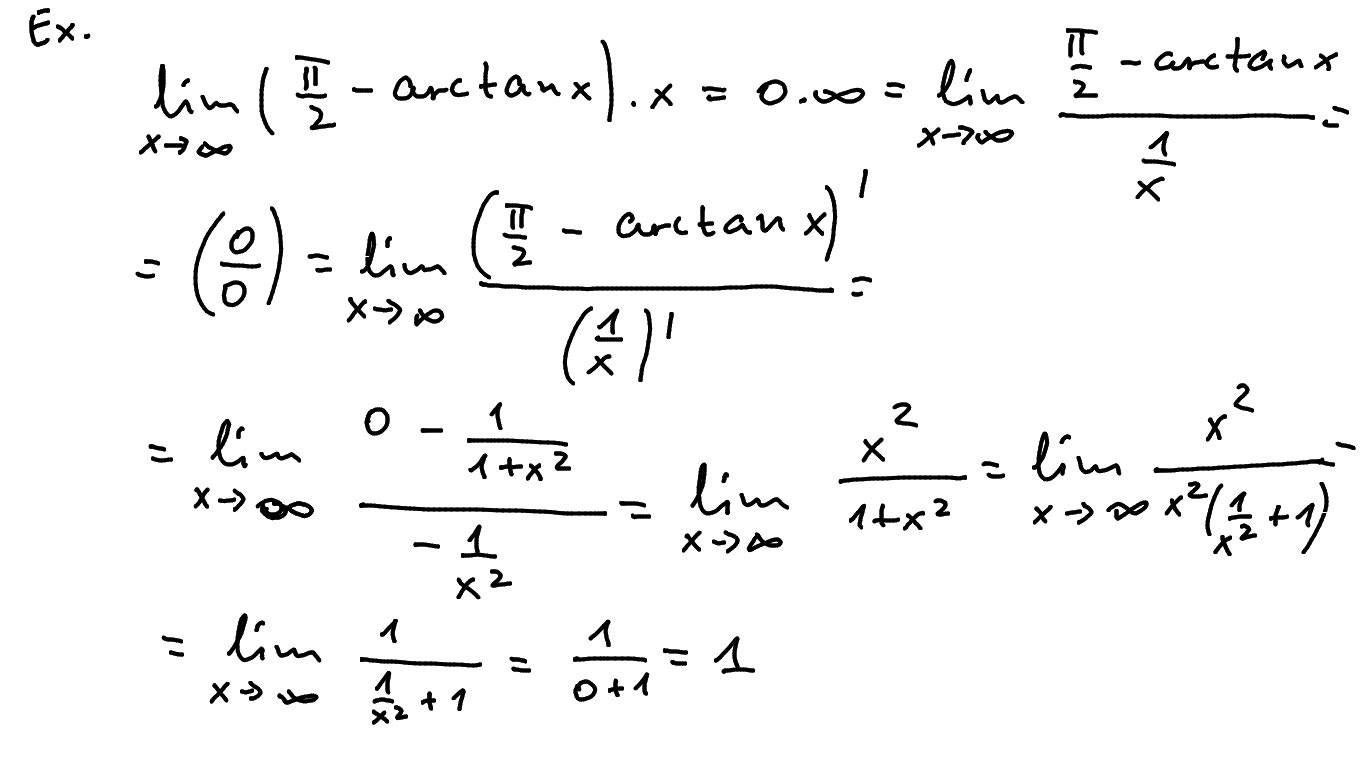 Ex.
lim_{x→∞} (π/2 - arctan x) . x = 0.∞ = lim_{x→∞} (π/2 - arctan x)/(1/x) =
= (0/0) = lim_{x→∞} (π/2 - arctan x)'/(1/x)' =
= lim_{x→∞} (0 - 1/(1+x²))/(-1/x²) = lim_{x→∞} x²/(1+x²) = lim_{x→∞} x²/(x²(1/x² + 1)) =
= lim_{x→∞} 1/(1/x² + 1) = 1/(0+1) = 1